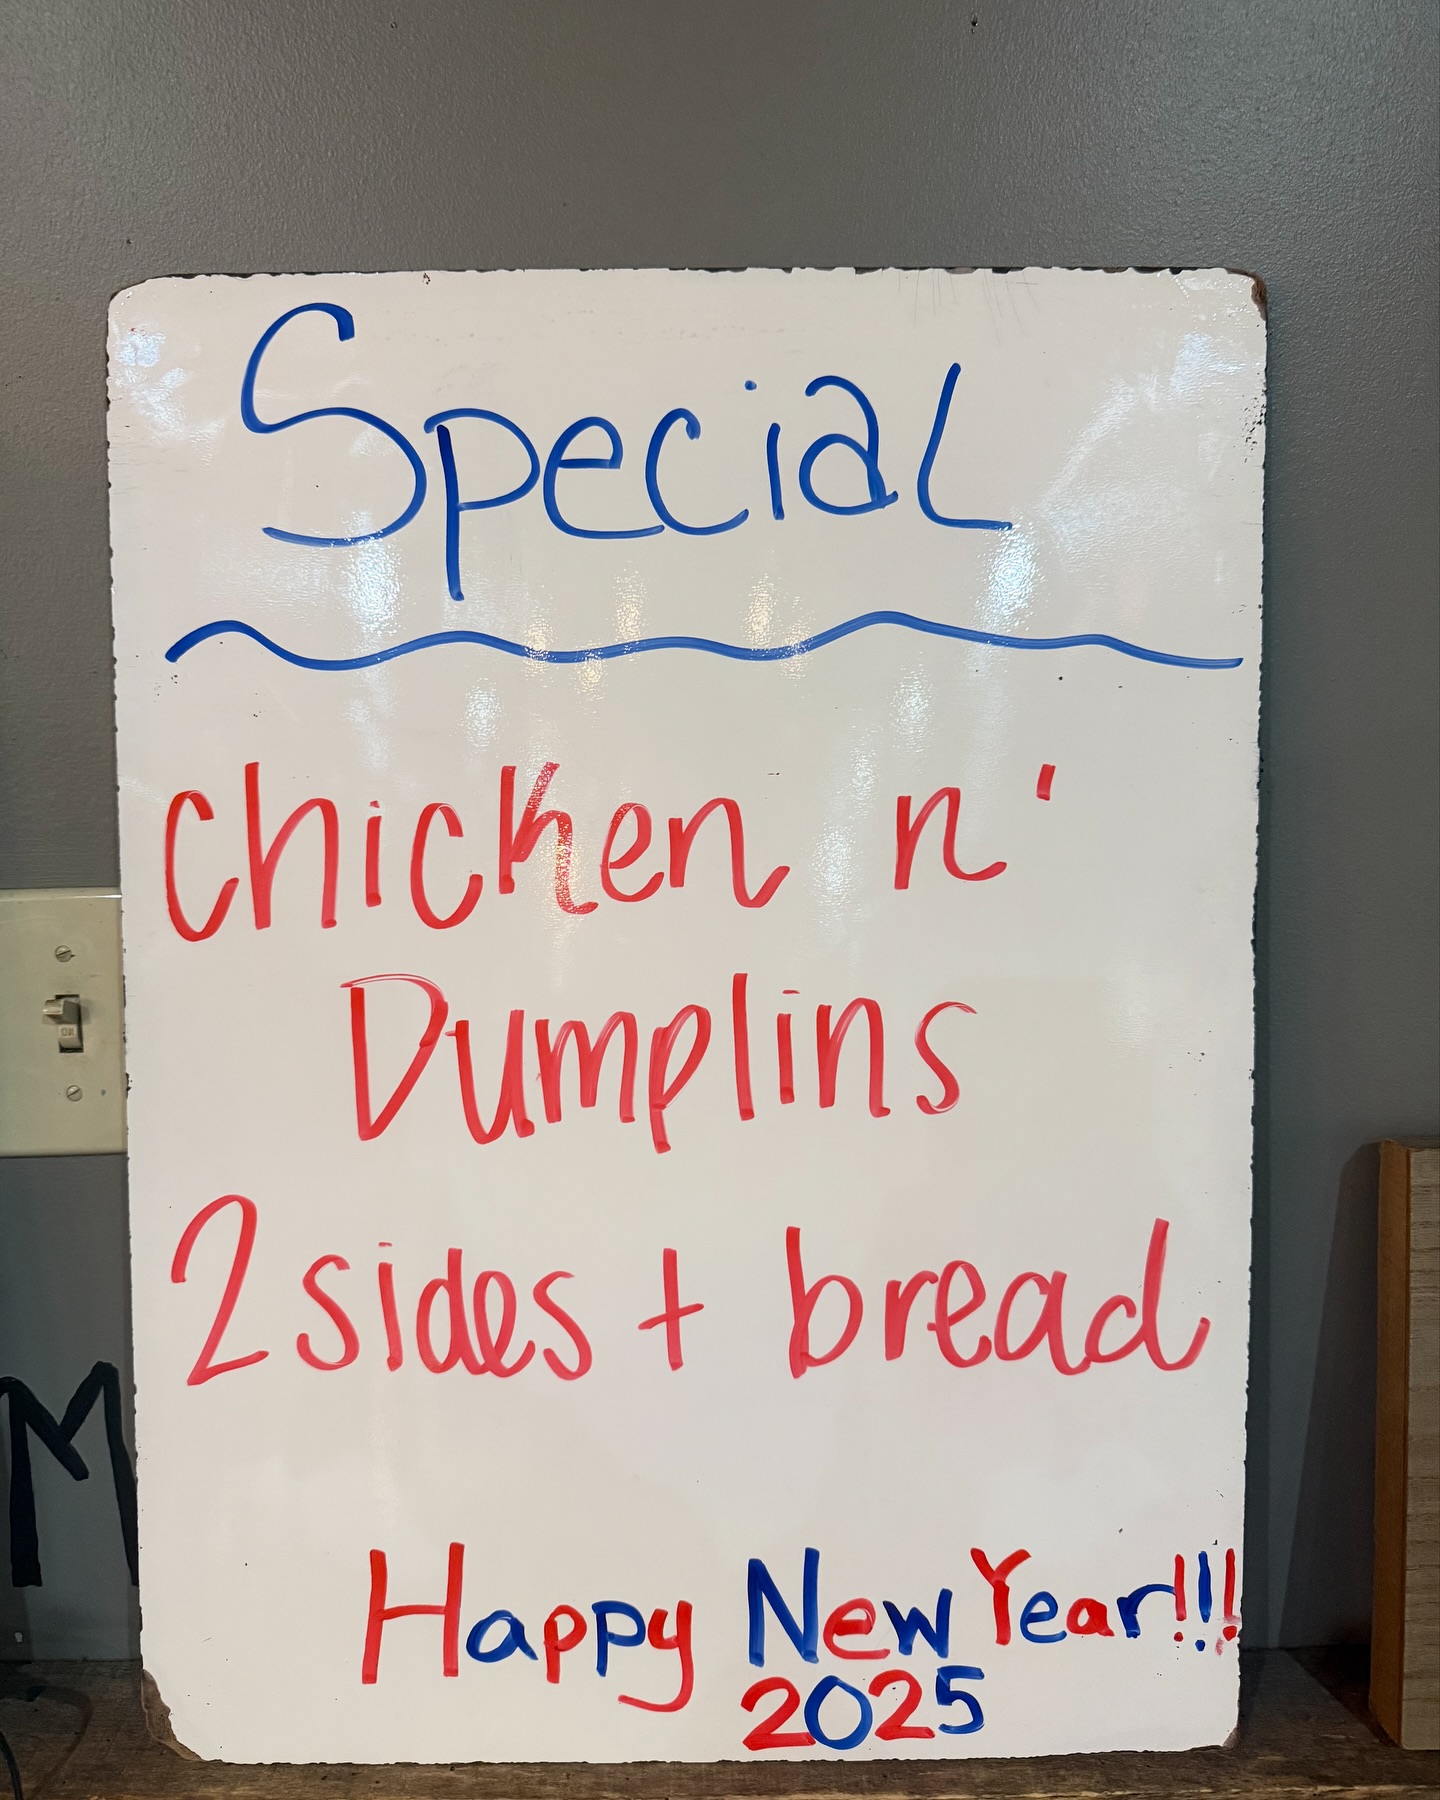 Special
chicken n'
Dumplins
2 sides + bread
Happy New Year!!!
2025
M
ON